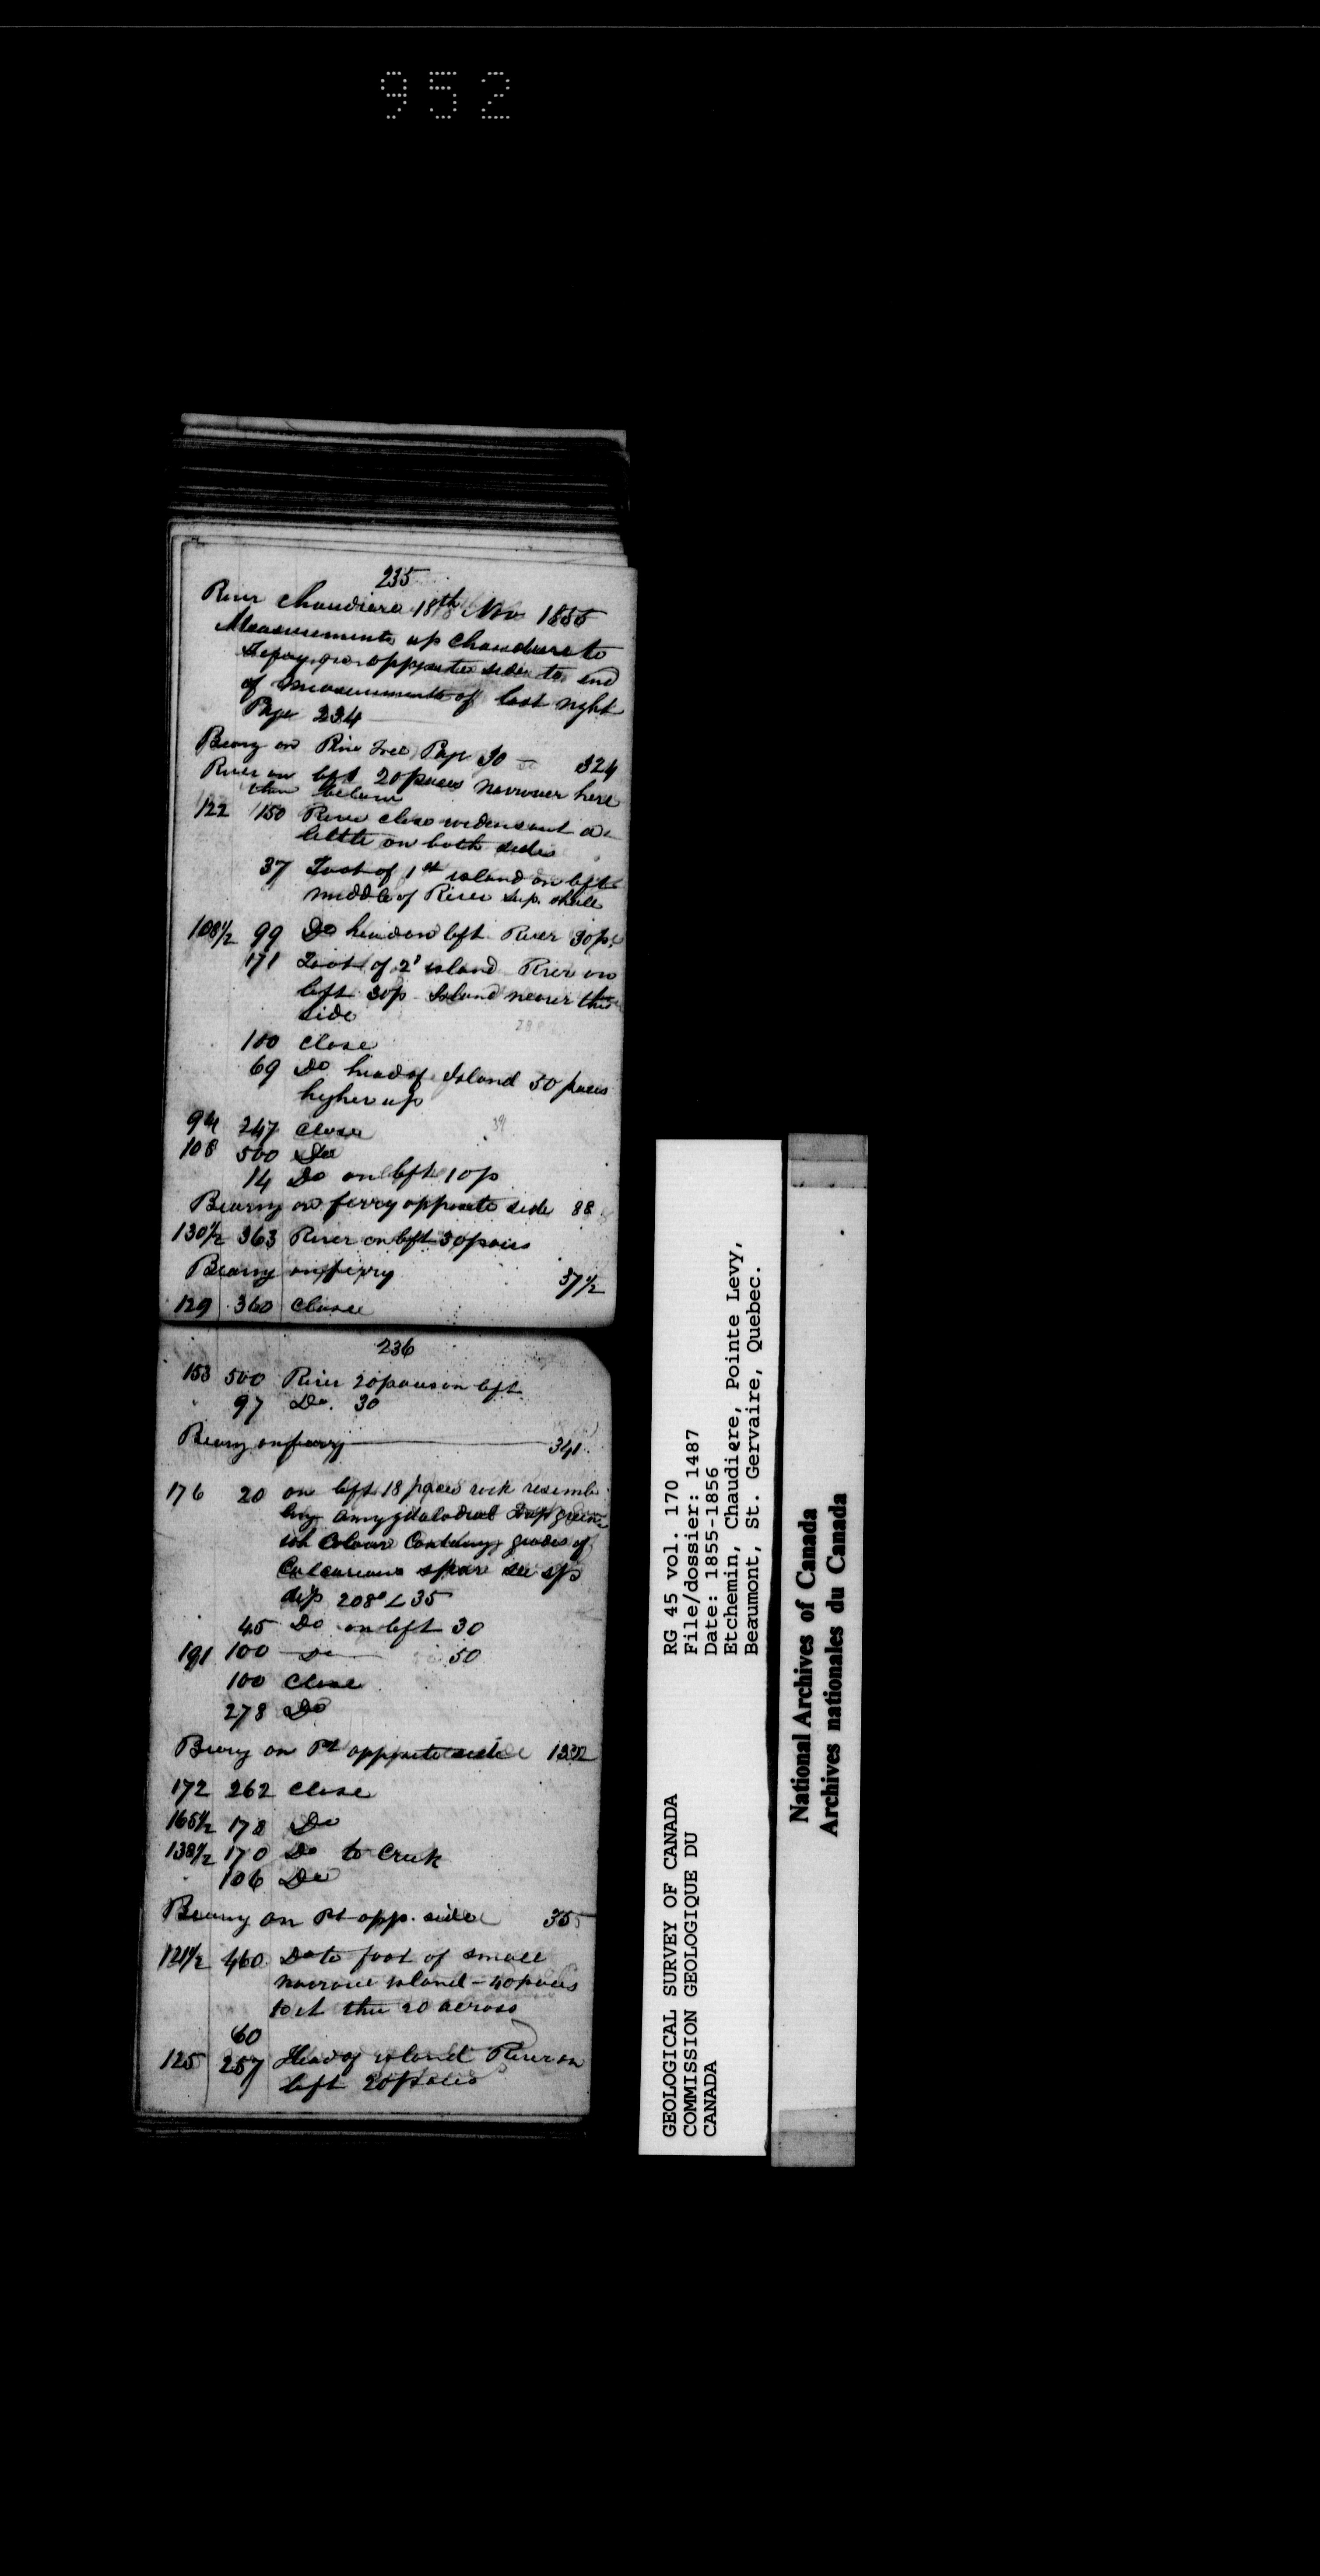 952
235
River Chaudiere 18th Nov 1855
Measurements up Chaudiere to
opposite side to end
of measurements of last night
Page 234
Bearg on Pine Tree Page 30 — 324
River on left 20 paces narrower here
than below
122 150 River close widens out a
little on both sides
37 Foot of 1st island on left
middle of River sup. shale
108½ 99 Do head on left River 30 p.
171 Foot of 2d island River on
left 30p Island nearer this
side
100 close
69 Do head of Island 50 paces
higher up
94 247 close
108 500 Do
14 Do on left 10p
Bearing on ferry opposite side 88
130½ 363 River on left 50 paces
Bearing on ferry 57½
129 360 close
236
153 500 River 20 paces on left
97 Do. 30
Bearg on ferry — 341
176 20 on left 18 paces rock resemb
ling amygdaloidal trap green
ish colour containing geodes of
Calcareous spar see sp
dip 208° L 35
45 Do on left 30
191 100 Do 50
100 close
278 Do
Bearg on Pt opposite side 132
172 262 close
165½ 178 Do
138½ 170 Do to Creek
106 Do
Bearing on Pt opp. side 355
121½ 460 Do to foot of small
narrow island — 40 paces
to it then 20 across
60
125 257 Head of island River on
left 20 paces
GEOLOGICAL SURVEY OF CANADA
COMMISSION GEOLOGIQUE DU
CANADA
RG 45 vol. 170
File/dossier: 1487
Date: 1855-1856
Etchemin, Chaudiere, Pointe Levy,
Beaumont, St. Gervaire, Quebec.
National Archives of Canada
Archives nationales du Canada